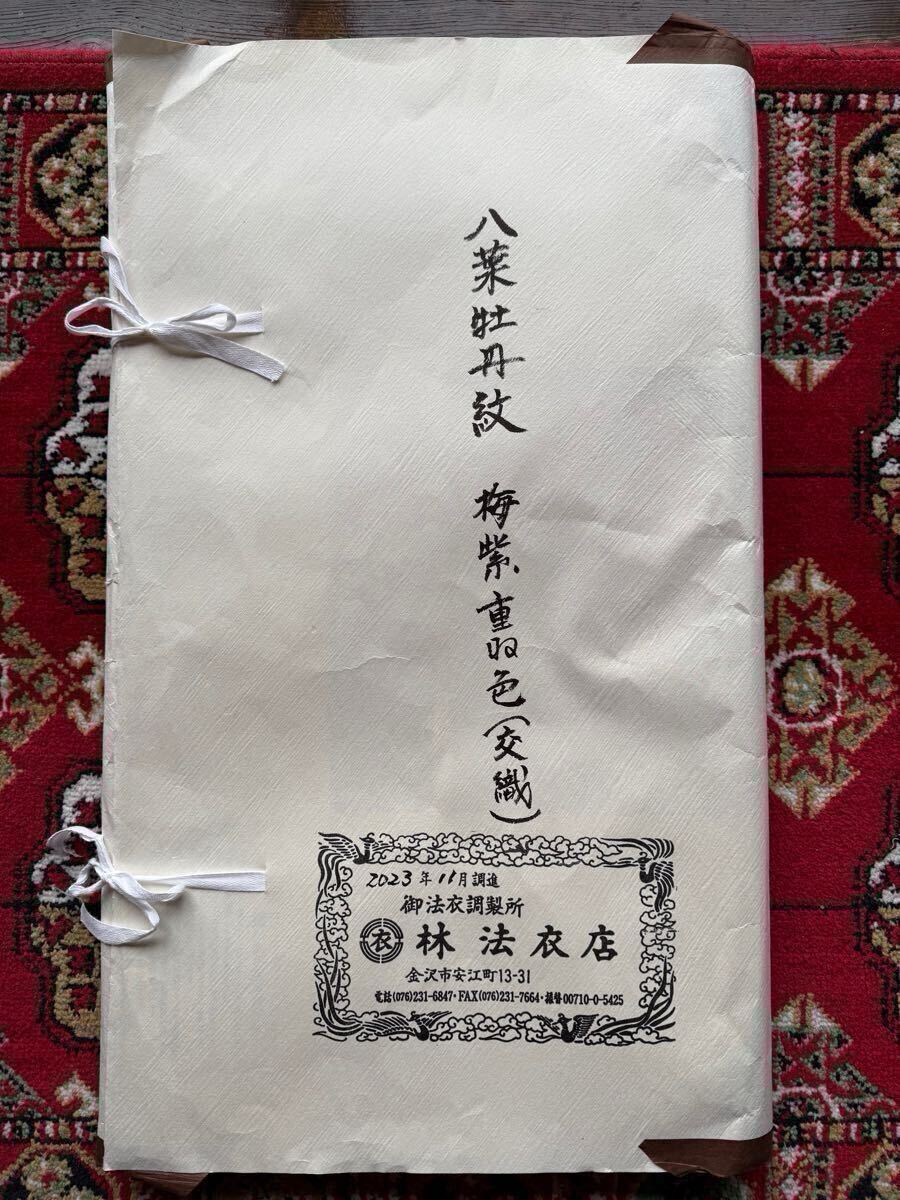 八葉牡丹紋　梅紫重ね色(交織)
2023年11月調進
御法衣調製所
衣 林法衣店
金沢市安江町13-31
電話(076)231-6847・FAX(076)231-7664・振替00710-0-5425